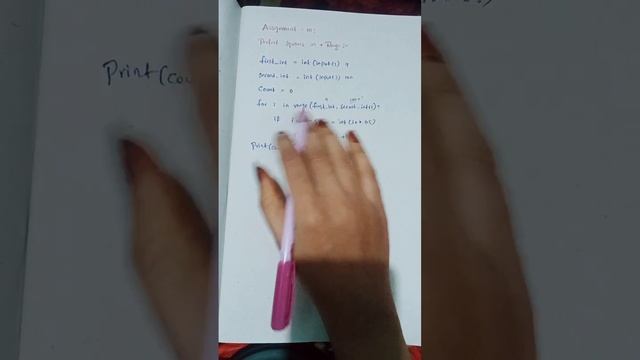 Assignment - 10:
Perfect squares in a Range :-
first_int = int(input()) 9
second_int = int(input()) 100
Count = 0
for i in range(first_int, second_int+1):
if = int(i**0.5)
+1
Print(cou